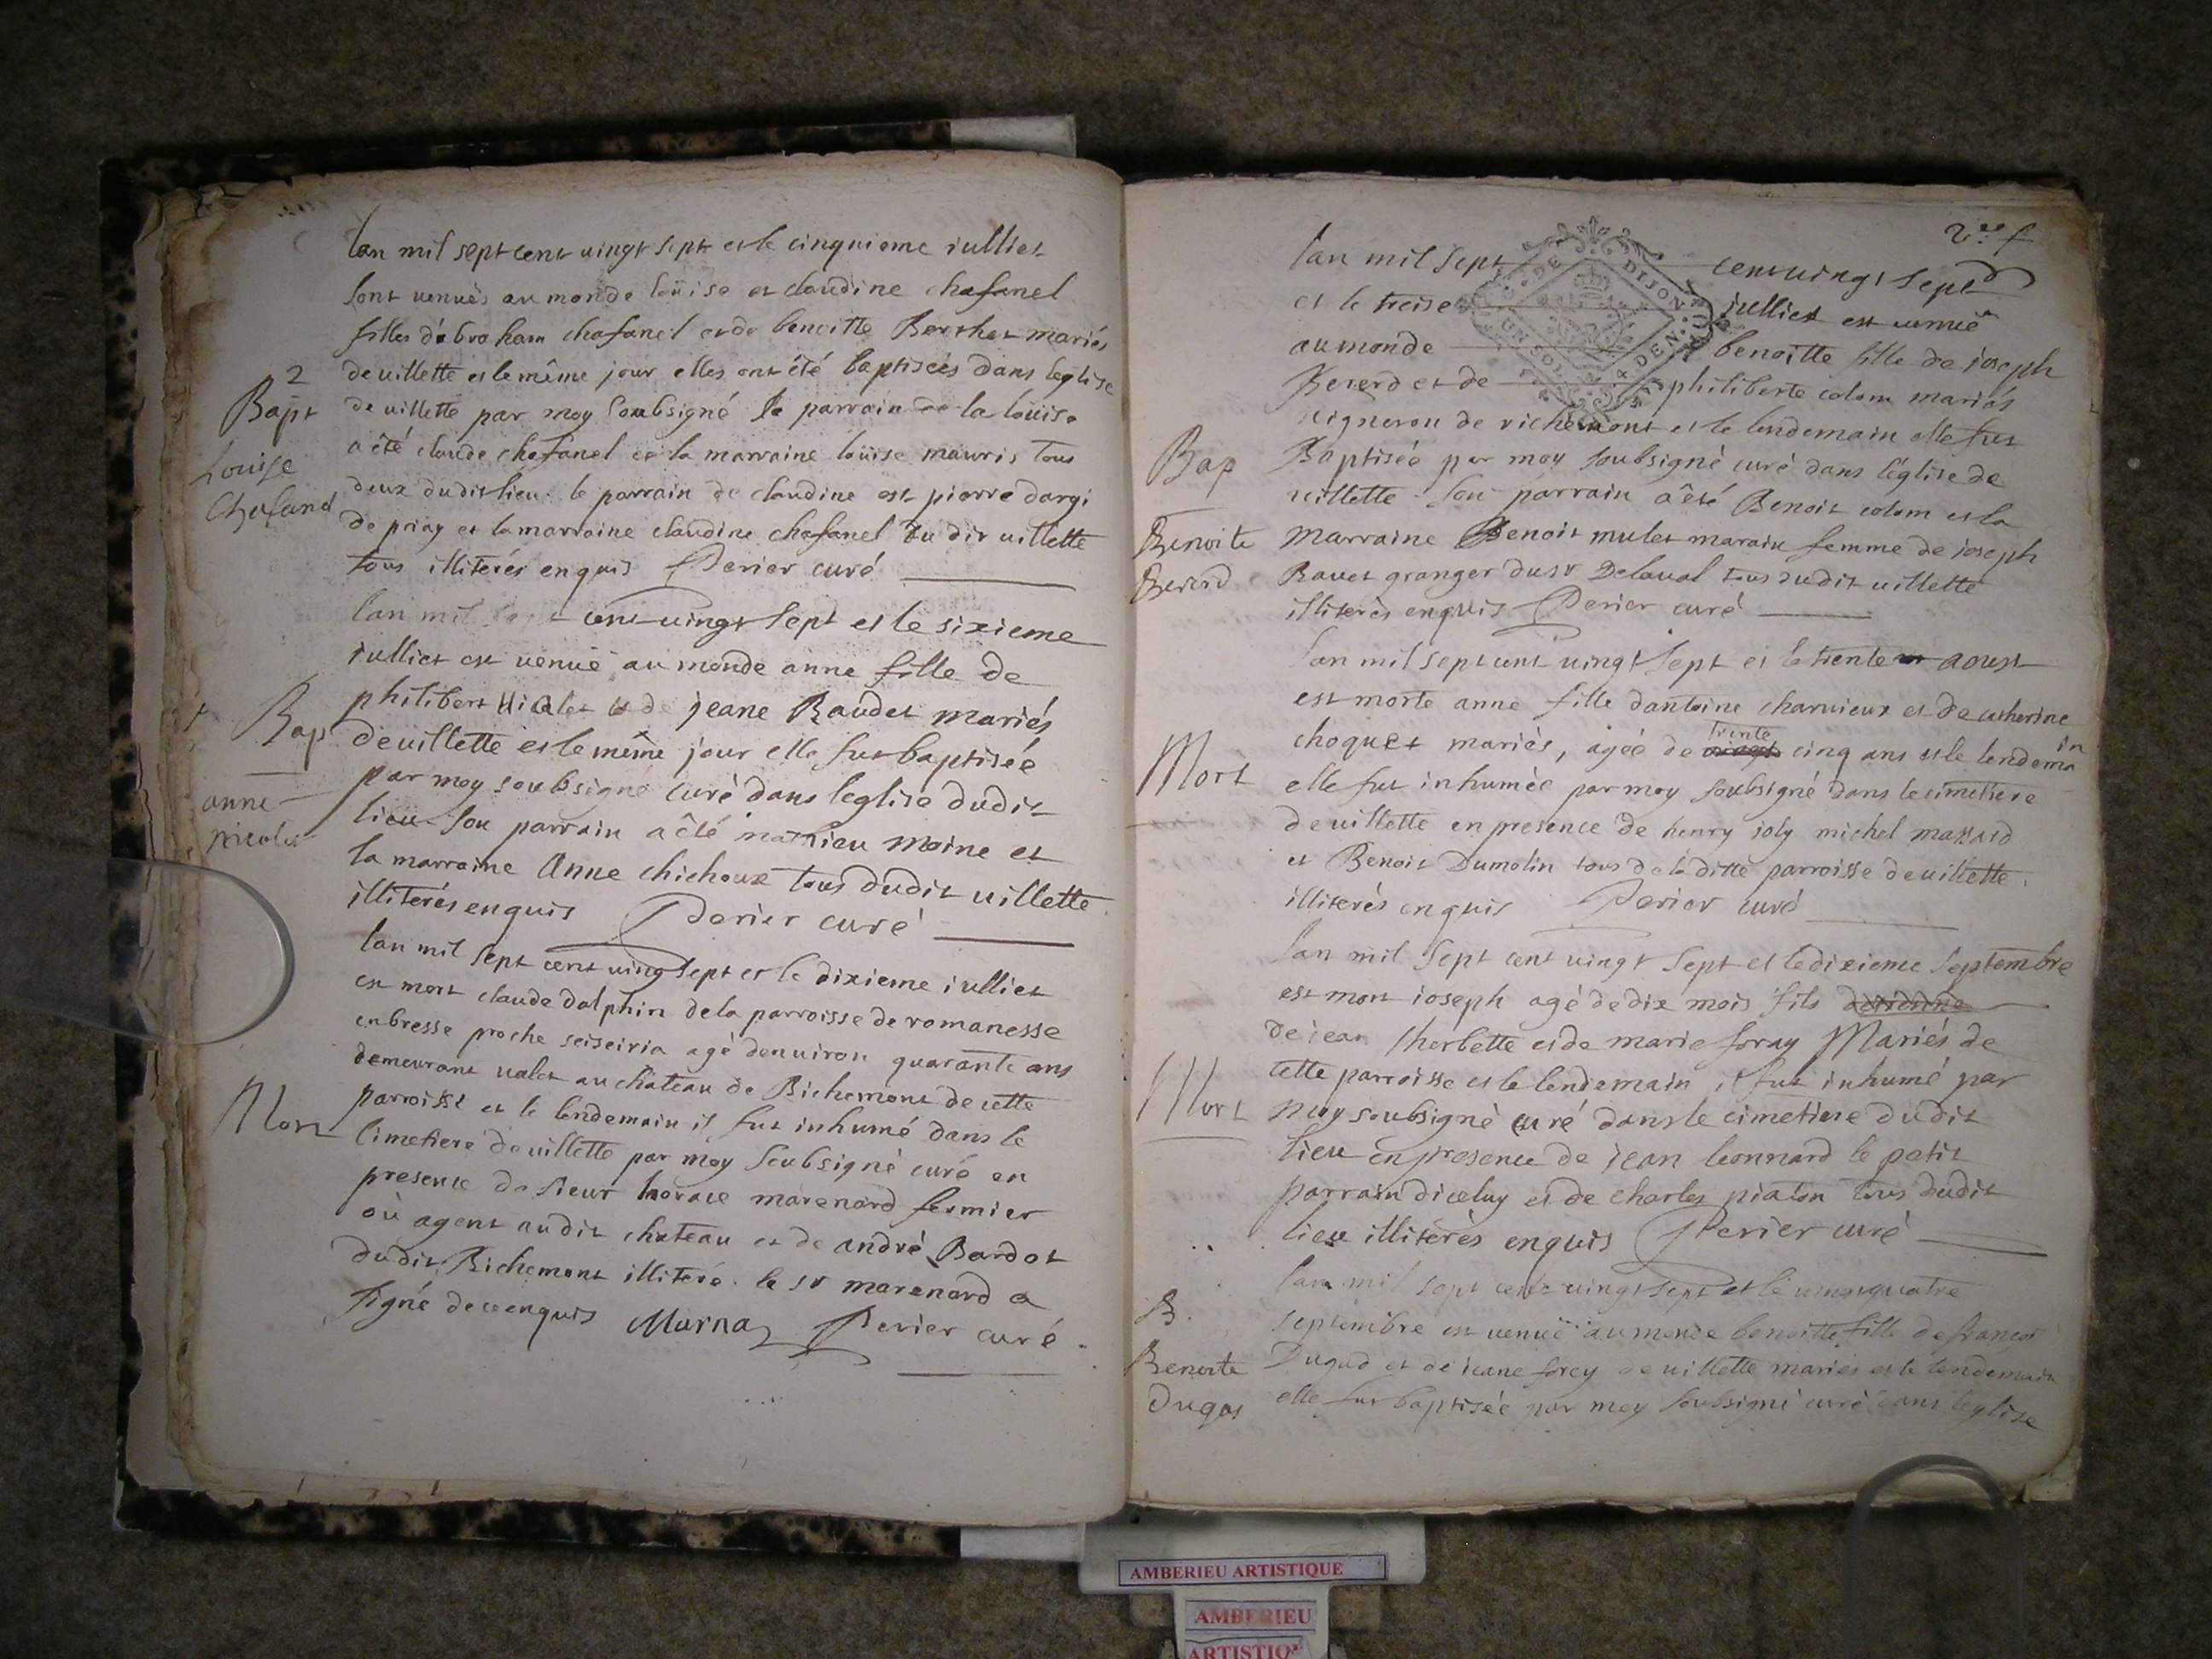 lan mil sept cent vingt sept et le cinquieme iulliet
sont venues au monde loüise et claudine chafanel
filles d'abraham chafanel et de benoitte Berthet mariés
de uillette et le même jour elles ont été baptiseés dans leglise
2
Bapt
Louise
Chafanel
de uillette par moy soubsigné le parrain de la loüise
a été claude chafanel et la marraine loüise mauris tous
deux dudit lieu. le parrain de claudine est pierre dargi
de priay et la marraine claudine chafanel du dit uillette
tous illiterés enquis Perier curé
lan mil sept cent uingt sept et le sixieme
iulliet est venuë au monde anne fille de
philibert Nicolet et de jeane Baudet mariés
Bap
anne
nicolet
de uillette et le même jour elle fut baptiseé
par moy soubsigné curé dans leglise dudit
lieu son parrain a été mathieu moine et
la marraine Anne chichoux tous dudit uillette
illiterés enquis Perier curé
lan mil sept cent uingt sept et le dixieme iulliet
est mort claude dalphin de la parroisse de romanesse
en bresse proche seiseiria agé denuiron quarante ans
demeurant ualet au château de Richemont de cette
Mort
parroisse et le lendemain il fut inhumé dans le
cimetiere de uillette par moy soubsigné curé en
presence de sieur horace marenard fermier
où agent audit chateau et de andré Bardot
dudit Richemont illiteré. le sr marenard a
signé de ce enquis Perier curé
lan mil sept cent uingt sept
et le treise iulliet est venuë
au monde benoitte fille de ioseph
Beserd et de philiberte colom mariés
DE DIJON
UN SOL 4 DEN.
uigneron de richemont et le lendemain elle fut
Bap
Benoite
Beserd
Baptiseé par moy soubsigné curé dans l'église de
uillette son parrain a été Benoit colom et la
marraine Benoit mulet femme de ioseph
Bauet granger du sr Delaual tous dudit uillette
illiterés enquis Perier curé
lan mil sept cent uingt sept et le trente aoust
est morte anne fille dantoine charuieux et de catherine
Mort
choquet mariés, ageé de trente cinq ans et le lendemain
elle fut inhumeé par moy soubsigné dans le cimetiere
de uillette en presence de henry ioly michel massard
et Benoit Dumolin tous de laditte parroisse de uillette.
illiterés enquis Perier curé
lan mil sept cent uingt sept et le dixieme septembre
est mort ioseph agé de dix mois fils
de iean therlette et de marie foray Mariés de
Mort
cette parroisse et le lendemain il fut inhumé par
moy soubsigné curé dans le cimetiere dudit
lieu en presence de jean leonnard le petit
parrain diceluy et de charles piaton tous dudit
lieu illiterés enquis Perier curé
lan mil sept cent uingt sept et le uingt quatre
B.
Benoite
Dugas
septembre est venuë au monde benoitte fille de françois
Dugad et de ieane forey de uillette mariés et le lendemain
elle fut baptiseé par moy soubsigné curé dans leglise
AMBERIEU ARTISTIQUE
AMBERIEU
ARTISTIQ